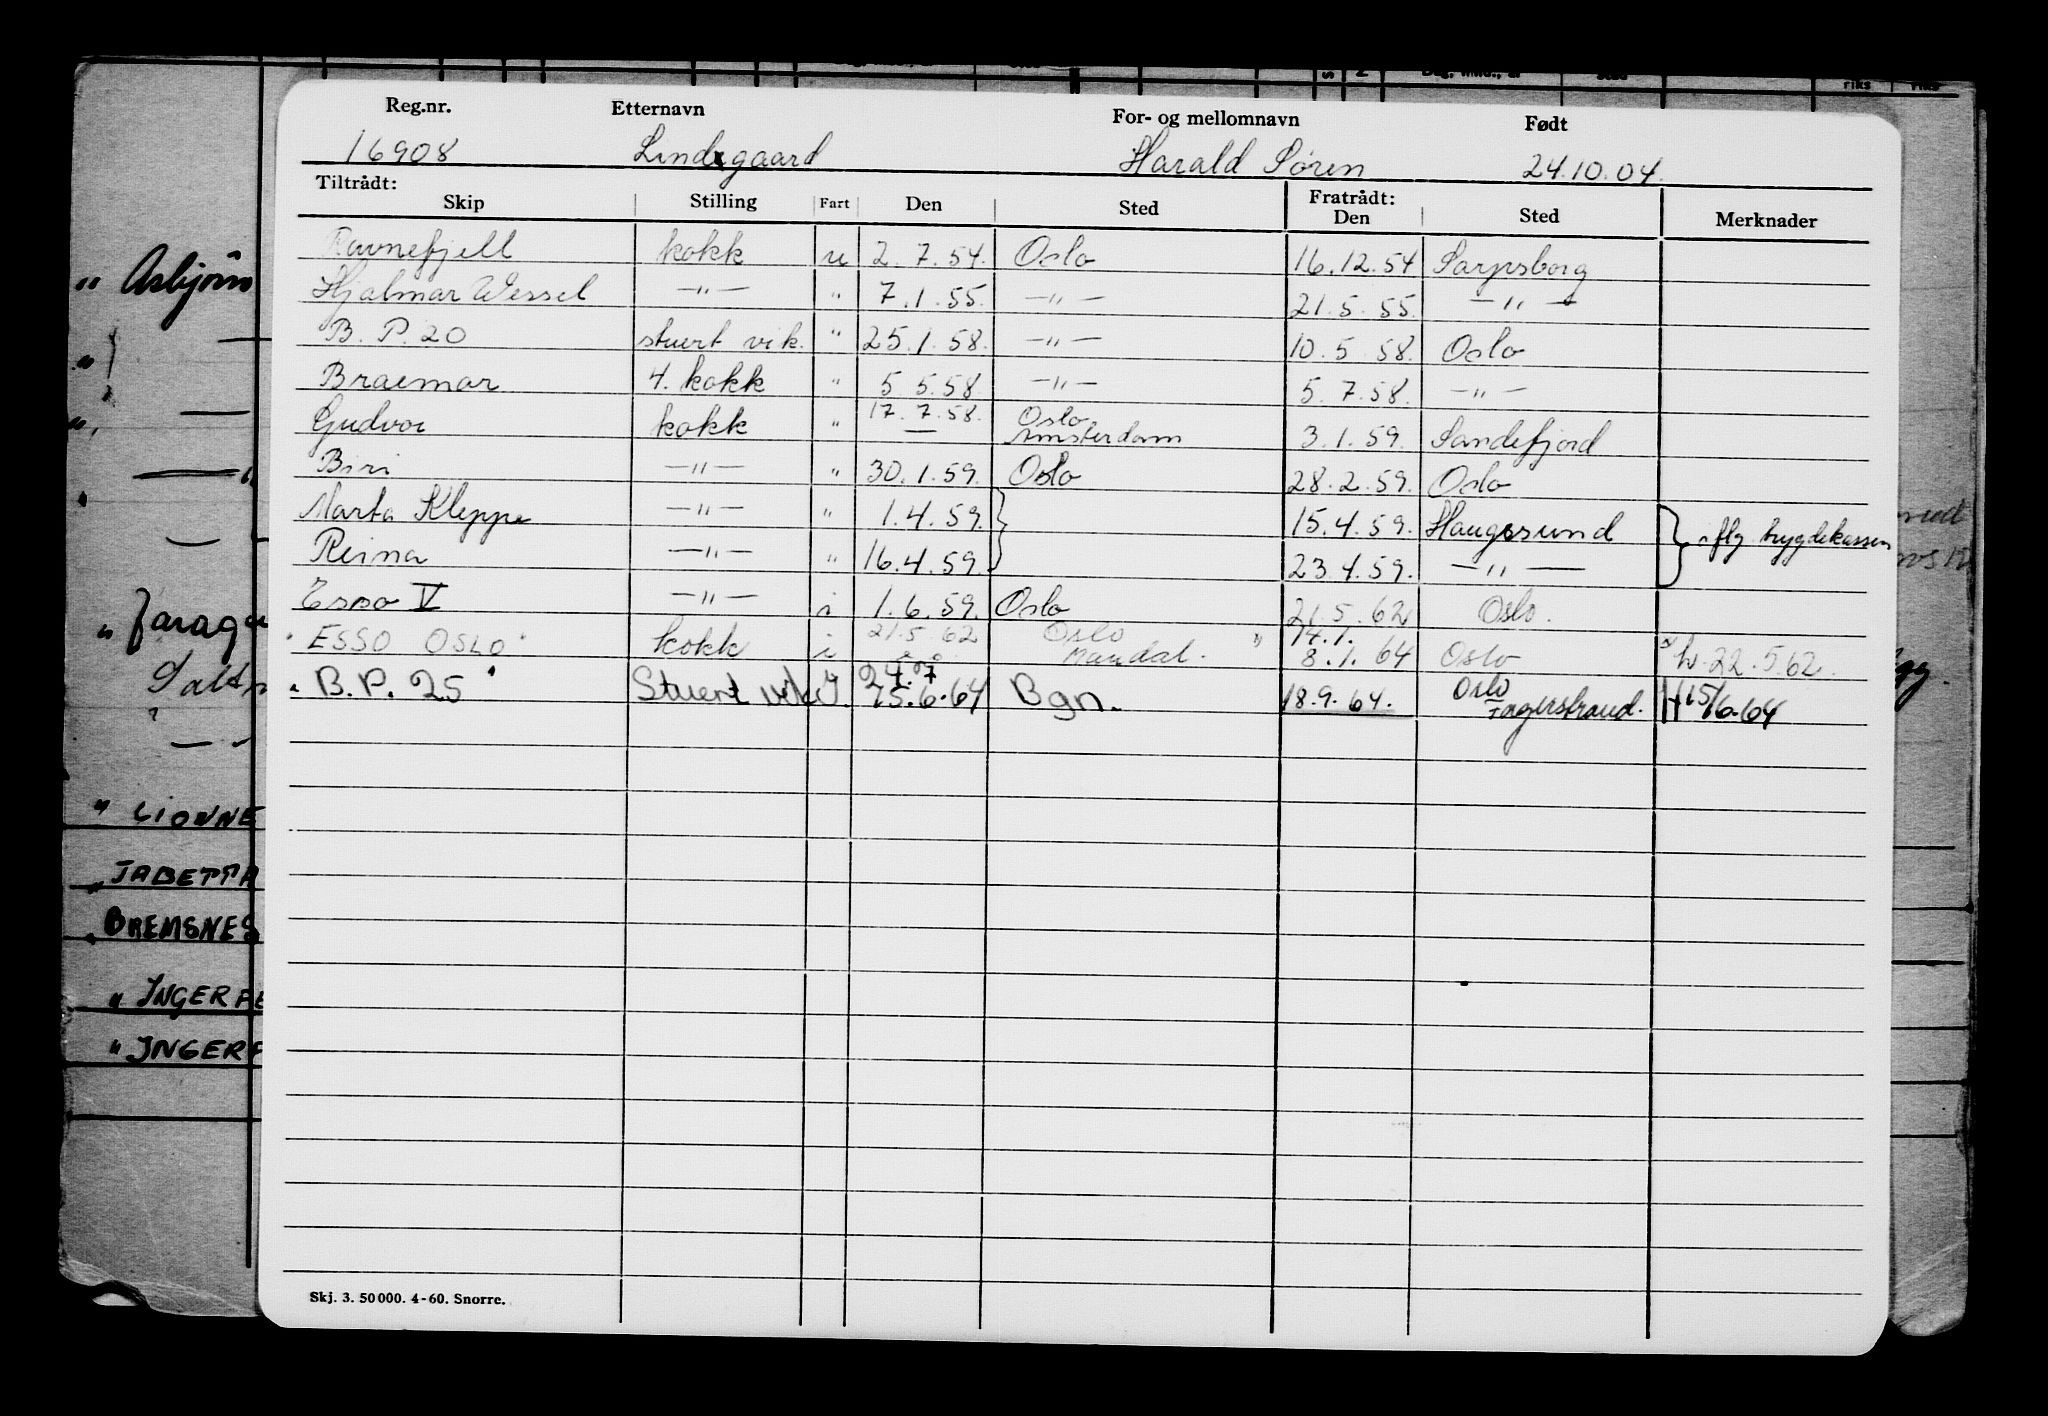 Reg.nr. Etternavn For- og mellomnavn Født
16908 Lindegaard Harald Søren 24.10.04.
Tiltrådt: Fratrådt:
Skip Stilling Fart Den Sted Den Sted Merknader
Ravnefjell kokk u 2.7.54. Oslo 16.12.54 Sarpsborg
Hjalmar Wessel —"— " 7.1.55. —"— 21.5.55. —"—
B.P. 20 stuert vik. " 25.1.58. —"— 10.5.58. Oslo
Braemar 4. kokk " 5.5.58. —"— 5.7.58. —"—
Gudvor kokk " 17.7.58. Oslo Amsterdam 3.1.59. Sandefjord
Biri —"— " 30.1.59. Oslo 28.2.59. Oslo
Marta Kleppe —"— " 1.4.59. } 15.4.59. Haugesund } iflg trygdekassen
Reina —"— " 16.4.59. 23.4.59. —"—
Esso V —"— i 1.6.59. Oslo 21.5.62 Oslo.
" ESSO OSLO " kokk i 21.5.62 Oslo " 14.1.
Mandal. 8.1.64 Oslo 22.5.62.
" B.P. 25 " Stuert vik I. 24.7 15.6.64 Bgn. 18.9.64. Oslo Fagerstrand. H 15/6-64
Skj. 3. 50000. 4-60. Snorre.
" Asbjörn
" LIONNE
" TABETTA
BREMSNES
" INGERFE
" INGERF